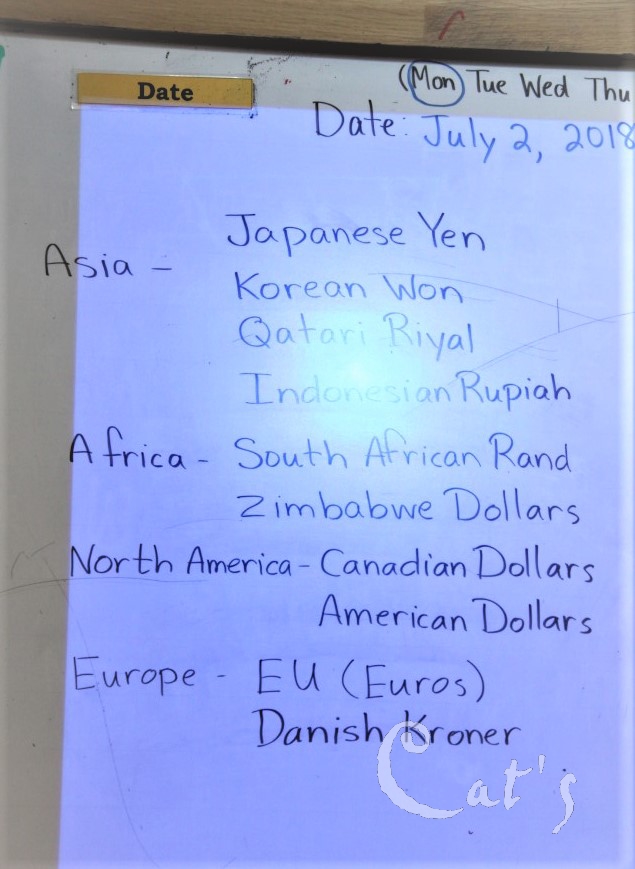 Date
(Mon Tue Wed Thu
Date: July 2, 2018
Asia - Japanese Yen
Korean Won
Qatari Riyal
Indonesian Rupiah
Africa - South African Rand
Zimbabwe Dollars
North America - Canadian Dollars
American Dollars
Europe - EU (Euros)
Danish Kroner
Cat's